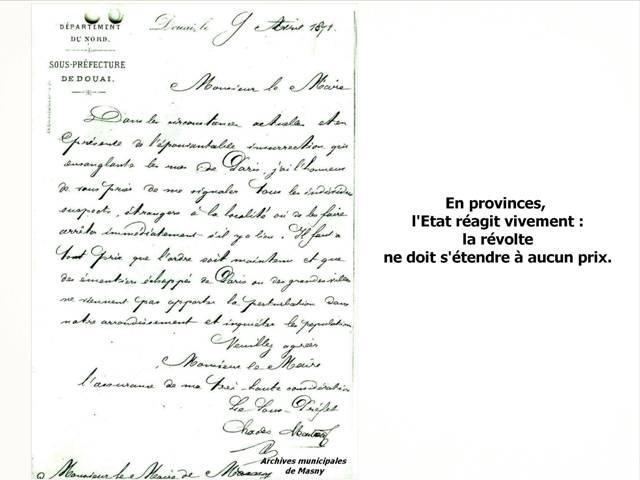 DÉPARTEMENT
DU NORD.
SOUS-PRÉFECTURE
DE DOUAI.
Douai, le 9 Avril 1871.
Monsieur le Maire
Dans les circonstances actuelles et en
présence de l'épouvantable insurrection qui
ensanglante les rues de Paris, j'ai l'honneur
de vous prier de me signaler tous les individus
suspects, étrangers à la localité ou de les faire
arrêter immédiatement s'il y a lieu. Il faut à
tout prix que l'ordre soit maintenu et que
des émeutiers échappés de Paris ou des grandes villes
ne viennent pas apporter la perturbation dans
notre arrondissement et inquiéter les population
Veuillez agréer
Monsieur le Maire
l'assurance de ma très-haute considération
Le Sous-Préfet
Charles
Monsieur le Maire de Masny
Archives municipales
de Masny
En provinces,
l'Etat réagit vivement :
la révolte
ne doit s'étendre à aucun prix.